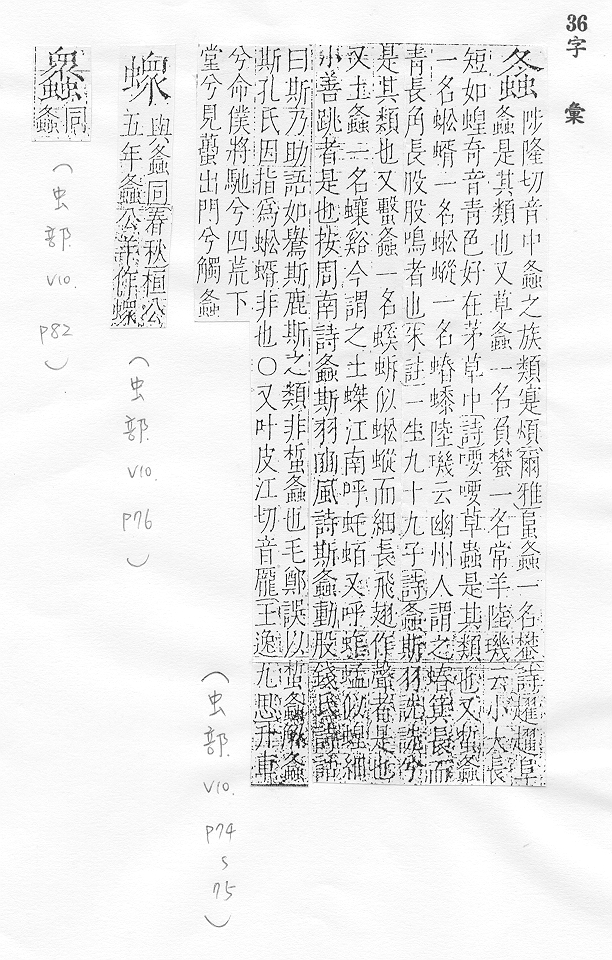 36字彙
螽 陟隆切音中螽之族類寔煩爾雅𧒂螽一名蠜詩趯趯阜
螽是其類也又草螽一名負蠜一名常羊陸璣云小大長
短如蝗奇音青色好在茅草中詩喓喓草蟲是其類也又蜤螽
一名蜙蝑一名蜙蟴一名蝽蟋陸璣云幽州人謂之蝽箕長而
青長角長股股鳴者也朱註一生九十九子詩螽斯羽詵詵兮
是其類也又蟿螽一名螇蚸似蜙蟴而細長飛翅作聲者是也
又土螽一名蠰谿今謂之土𧒂江南呼虴蛨又呼蚱蜢似蝗細
小善跳者是也按周南詩螽斯羽豳風詩斯螽動股錢氏詩話
曰斯乃助語如鸒斯鹿斯之類非蜤螽也毛鄭誤以蜤螽解螽
斯孔氏因指為蜙蝑非也○又叶皮江切音龎王逸九思升車
兮命僕將馳兮四荒下
堂兮見蠆出門兮觸螽
𧑄 與螽同春秋桓公
五年螽公羊作𧑄
蠡 同
螽
(虫部 V10. P82)
(虫部 V10. P76)
(虫部 V10. P74 S 75)